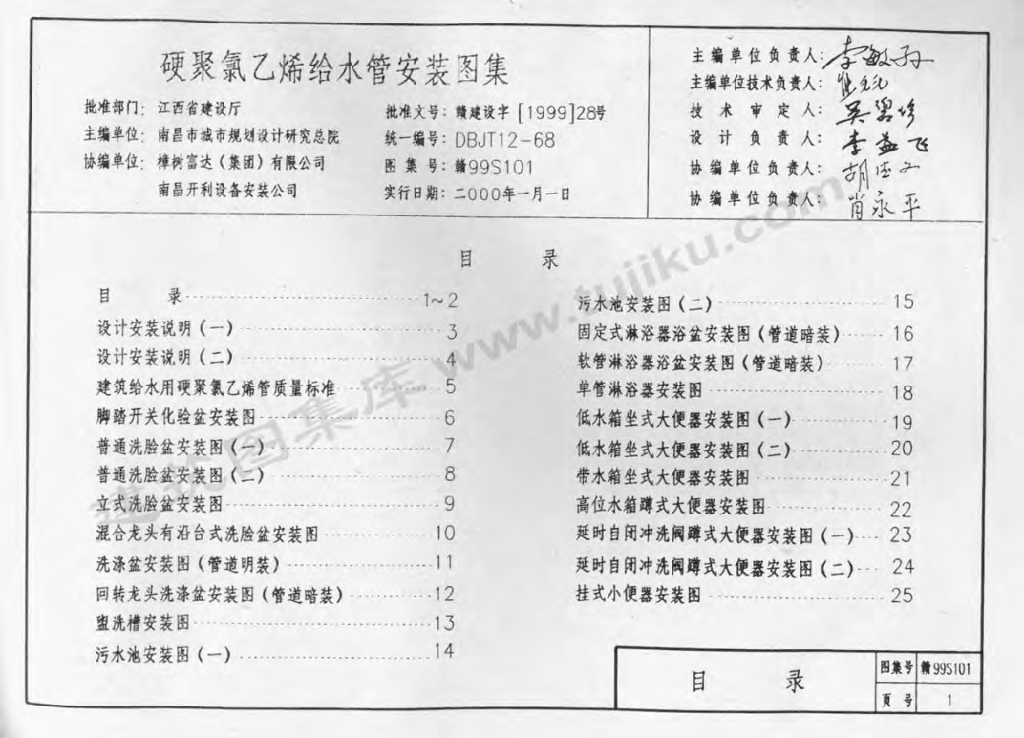 硬聚氯乙烯给水管安装图集
批准部门: 江西省建设厅
主编单位: 南昌市城市规划设计研究总院
协编单位: 樟树富达(集团)有限公司
南昌开利设备安装公司
批准文号: 赣建设字 [1999]28号
统一编号: DBJT12-68
图集号: 赣99S101
实行日期: 二000年一月一日
主编单位负责人:
主编单位技术负责人:
技术审定人:
设计负责人: 李益飞
协编单位负责人:
协编单位负责人: 肖永平
目 录
目 录 1~2
设计安装说明(一) 3
设计安装说明(二) 4
建筑给水用硬聚氯乙烯管质量标准 5
脚踏开关化验盆安装图 6
普通洗脸盆安装图(一) 7
普通洗脸盆安装图(二) 8
立式洗脸盆安装图 9
混合龙头有沿台式洗脸盆安装图 10
洗涤盆安装图(管道明装) 11
回转龙头洗涤盆安装图(管道暗装) 12
盥洗槽安装图 13
污水池安装图(一) 14
污水池安装图(二) 15
固定式淋浴器浴盆安装图(管道暗装) 16
软管淋浴器浴盆安装图(管道暗装) 17
单管淋浴器安装图 18
低水箱坐式大便器安装图(一) 19
低水箱坐式大便器安装图(二) 20
带水箱坐式大便器安装图 21
高位水箱蹲式大便器安装图 22
延时自闭冲洗阀蹲式大便器安装图(一) 23
延时自闭冲洗阀蹲式大便器安装图(二) 24
挂式小便器安装图 25
建筑图集库 www.tujiku.com
目 录
图集号 赣99S101
頁 号 1